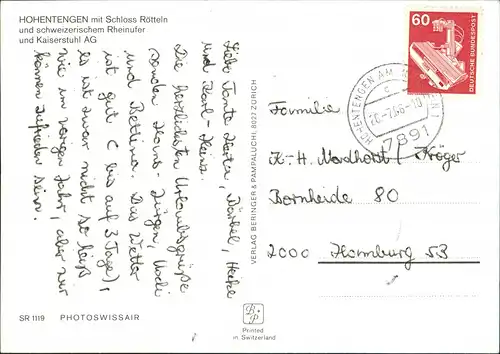 HOHENTENGEN mit Schloss Rötteln
und schweizerischem Rheinufer
und Kaiserstuhl AG
Liebe Tante Herta, Bärbel, Heike
und Karl-Heinz.
Die herzlichsten Urlaubsgrüße
senden Hans-Jürgen, Uschi
und Bettina. Das Wetter
ist gut (bis auf 3 Tage),
es ist zwar nicht so heiß
wie im vorigen Jahr, aber wir
können zufrieden sein.
SR 1119 PHOTOSWISSAIR
VERLAG BERINGER & PAMPALUCHI, 8022 ZÜRICH
B P
Printed
in Switzerland
60
DEUTSCHE BUNDESPOST
HOHENTENGEN AM
c
7891
Familie
K.-H. Nordhorst / Kröger
Bornheide 80
2000 Hamburg 53